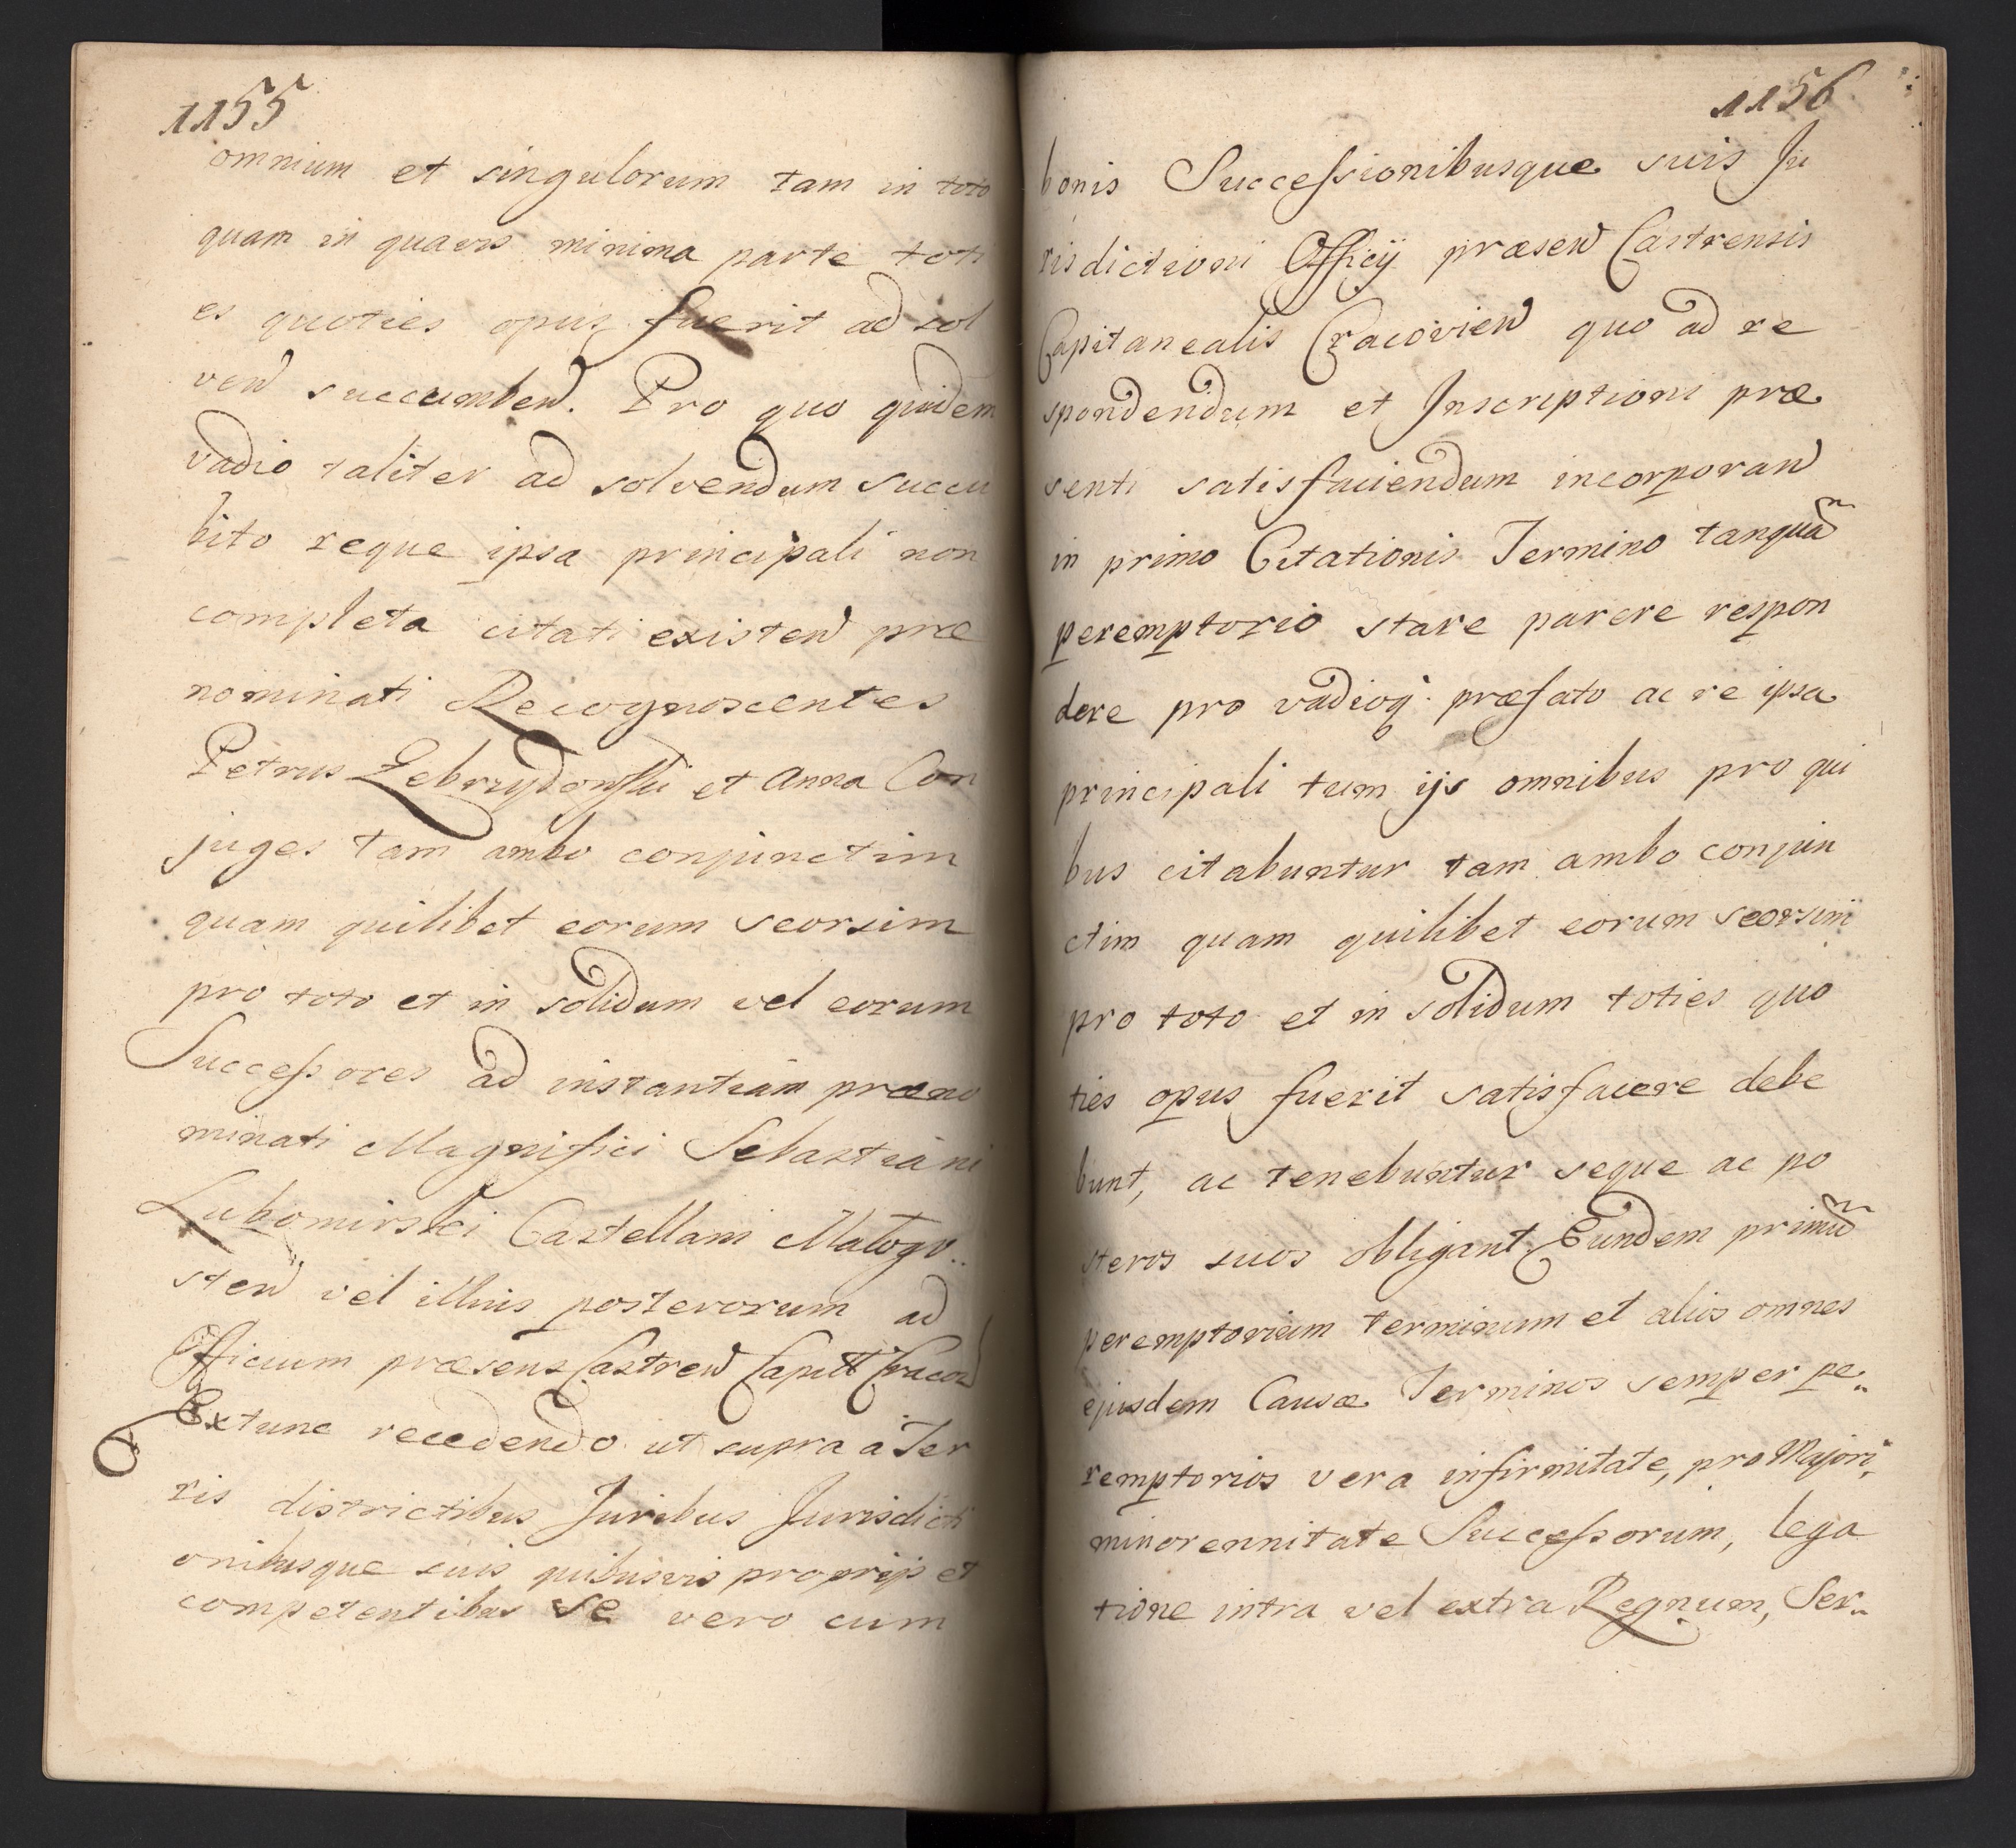 1155
omnium et singulorum tam in toto
quam in quavis minima parte toti
es quoties opus fuerit ad sol
ven succumben. Pro quo quidem
vadio taliter ad solvendum succu
bito reque ipsa principali non
completa citati existen præ
nominati Recognoscentes
Petrus Zebrzydowski et Anna Con
juges tam ambo conjunctim
quam quilibet eorum seorsim
pro toto et in solidum vel eorum
Successores ad instantiam præno
minati Magnifici Sebastiani
Lubomirski Castellani Malogo..
sten vel illius posterorum ad
Officium præsens Castren Capitt Cracov
Extunc recedendo ut supra à Ter
ris districtibus Juribus Jurisdicti
onibusque suis quibusvis proprijs et
competentibus se vero cum
1156
bonis Successionibusque suis Ju
risdictioni Officij præsen Castrensis
Capitanealis Cracovien quo ad re
spondendum et Inscriptioni præ
senti satisfaciendum incorporan
in primo Citationis Termino tanquã
peremptorio stare parere respon
dere pro vadioq præfato ac re ipsa
principali tum ijs omnibus pro qui
bus citabuntur tam ambo conjun
ctim quam quilibet eorum seorsim
pro toto et in solidum toties quo
ties opus fuerit satisfacere debe
bunt, ac tenebuntur seque ac po
steros suos obligant. Eundem primũ
peremptorium terminum et alios omnes
ejusdem Causæ Terminos semper pe..
remptorios vera infirmitate, pro Majori,
minorennitate Successorum, lega
tione intra vel extra Regnum, Ser..